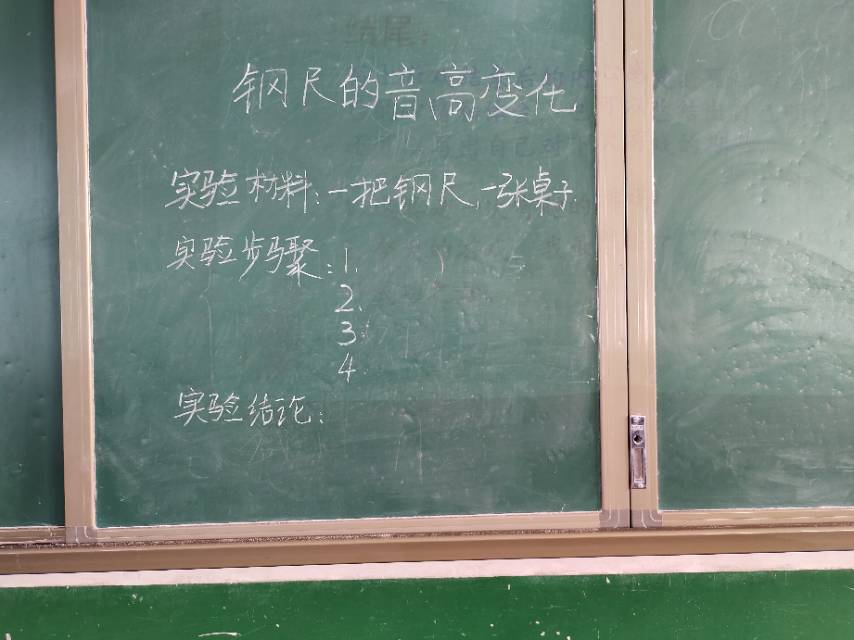 钢尺的音高变化
实验材料:一把钢尺、一张桌子
实验步骤:1、
2、
3、
4
实验结论: